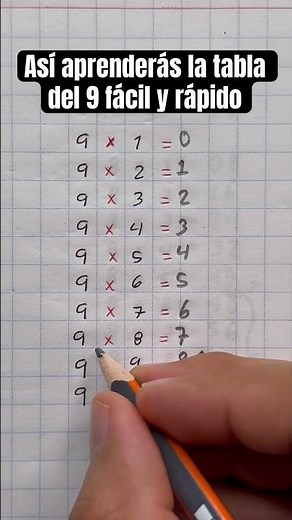 Así aprenderás la tabla
del 9 fácil y rápido
9 x 1 = 0
9 x 2 = 1
9 x 3 = 2
9 x 4 = 3
9 x 5 = 4
9 x 6 = 5
9 x 7 = 6
9 x 8 = 7
9 9
9